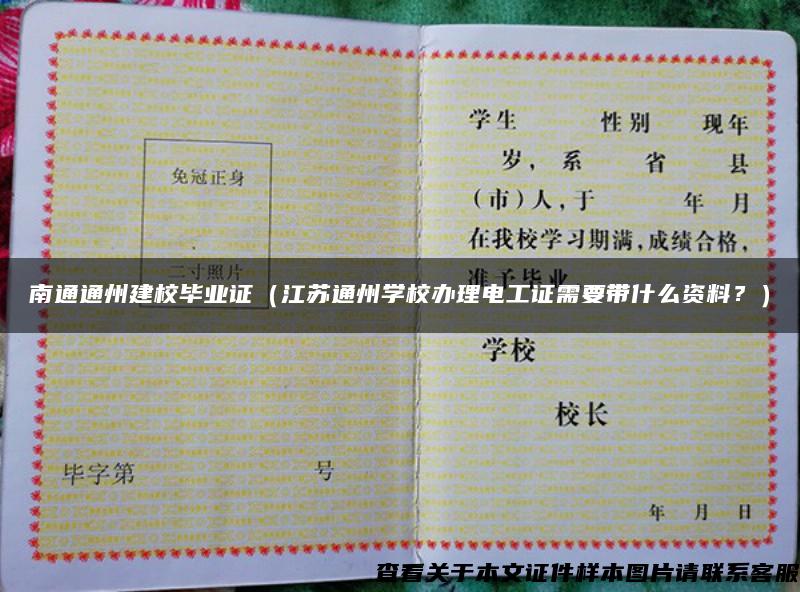 免冠正身
二寸照片
毕字第 号
学生 性别 现年
岁，系 省 县
（市）人，于 年 月
在我校学习期满，成绩合格，
准予毕业
学校
校长
年 月 日
南通通州建校毕业证（江苏通州学校办理电工证需要带什么资料？）
查看关于本文证件样本图片请联系客服